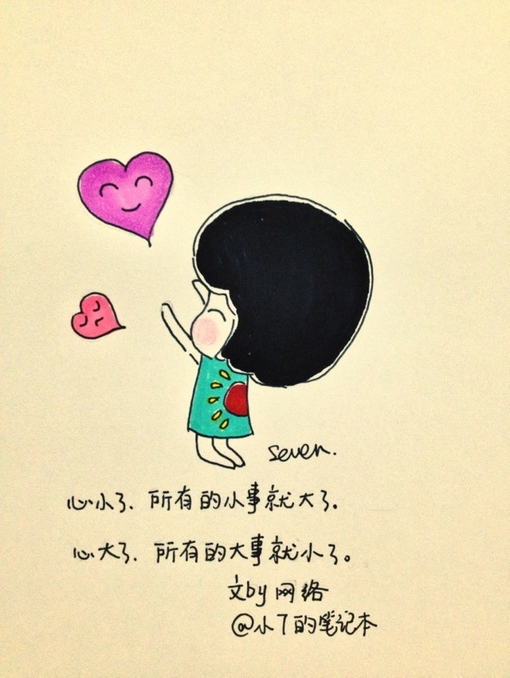 seven.
心小了、所有的小事就大了。
心大了、所有的大事就小了。
文by 网络
@小丫的笔记本